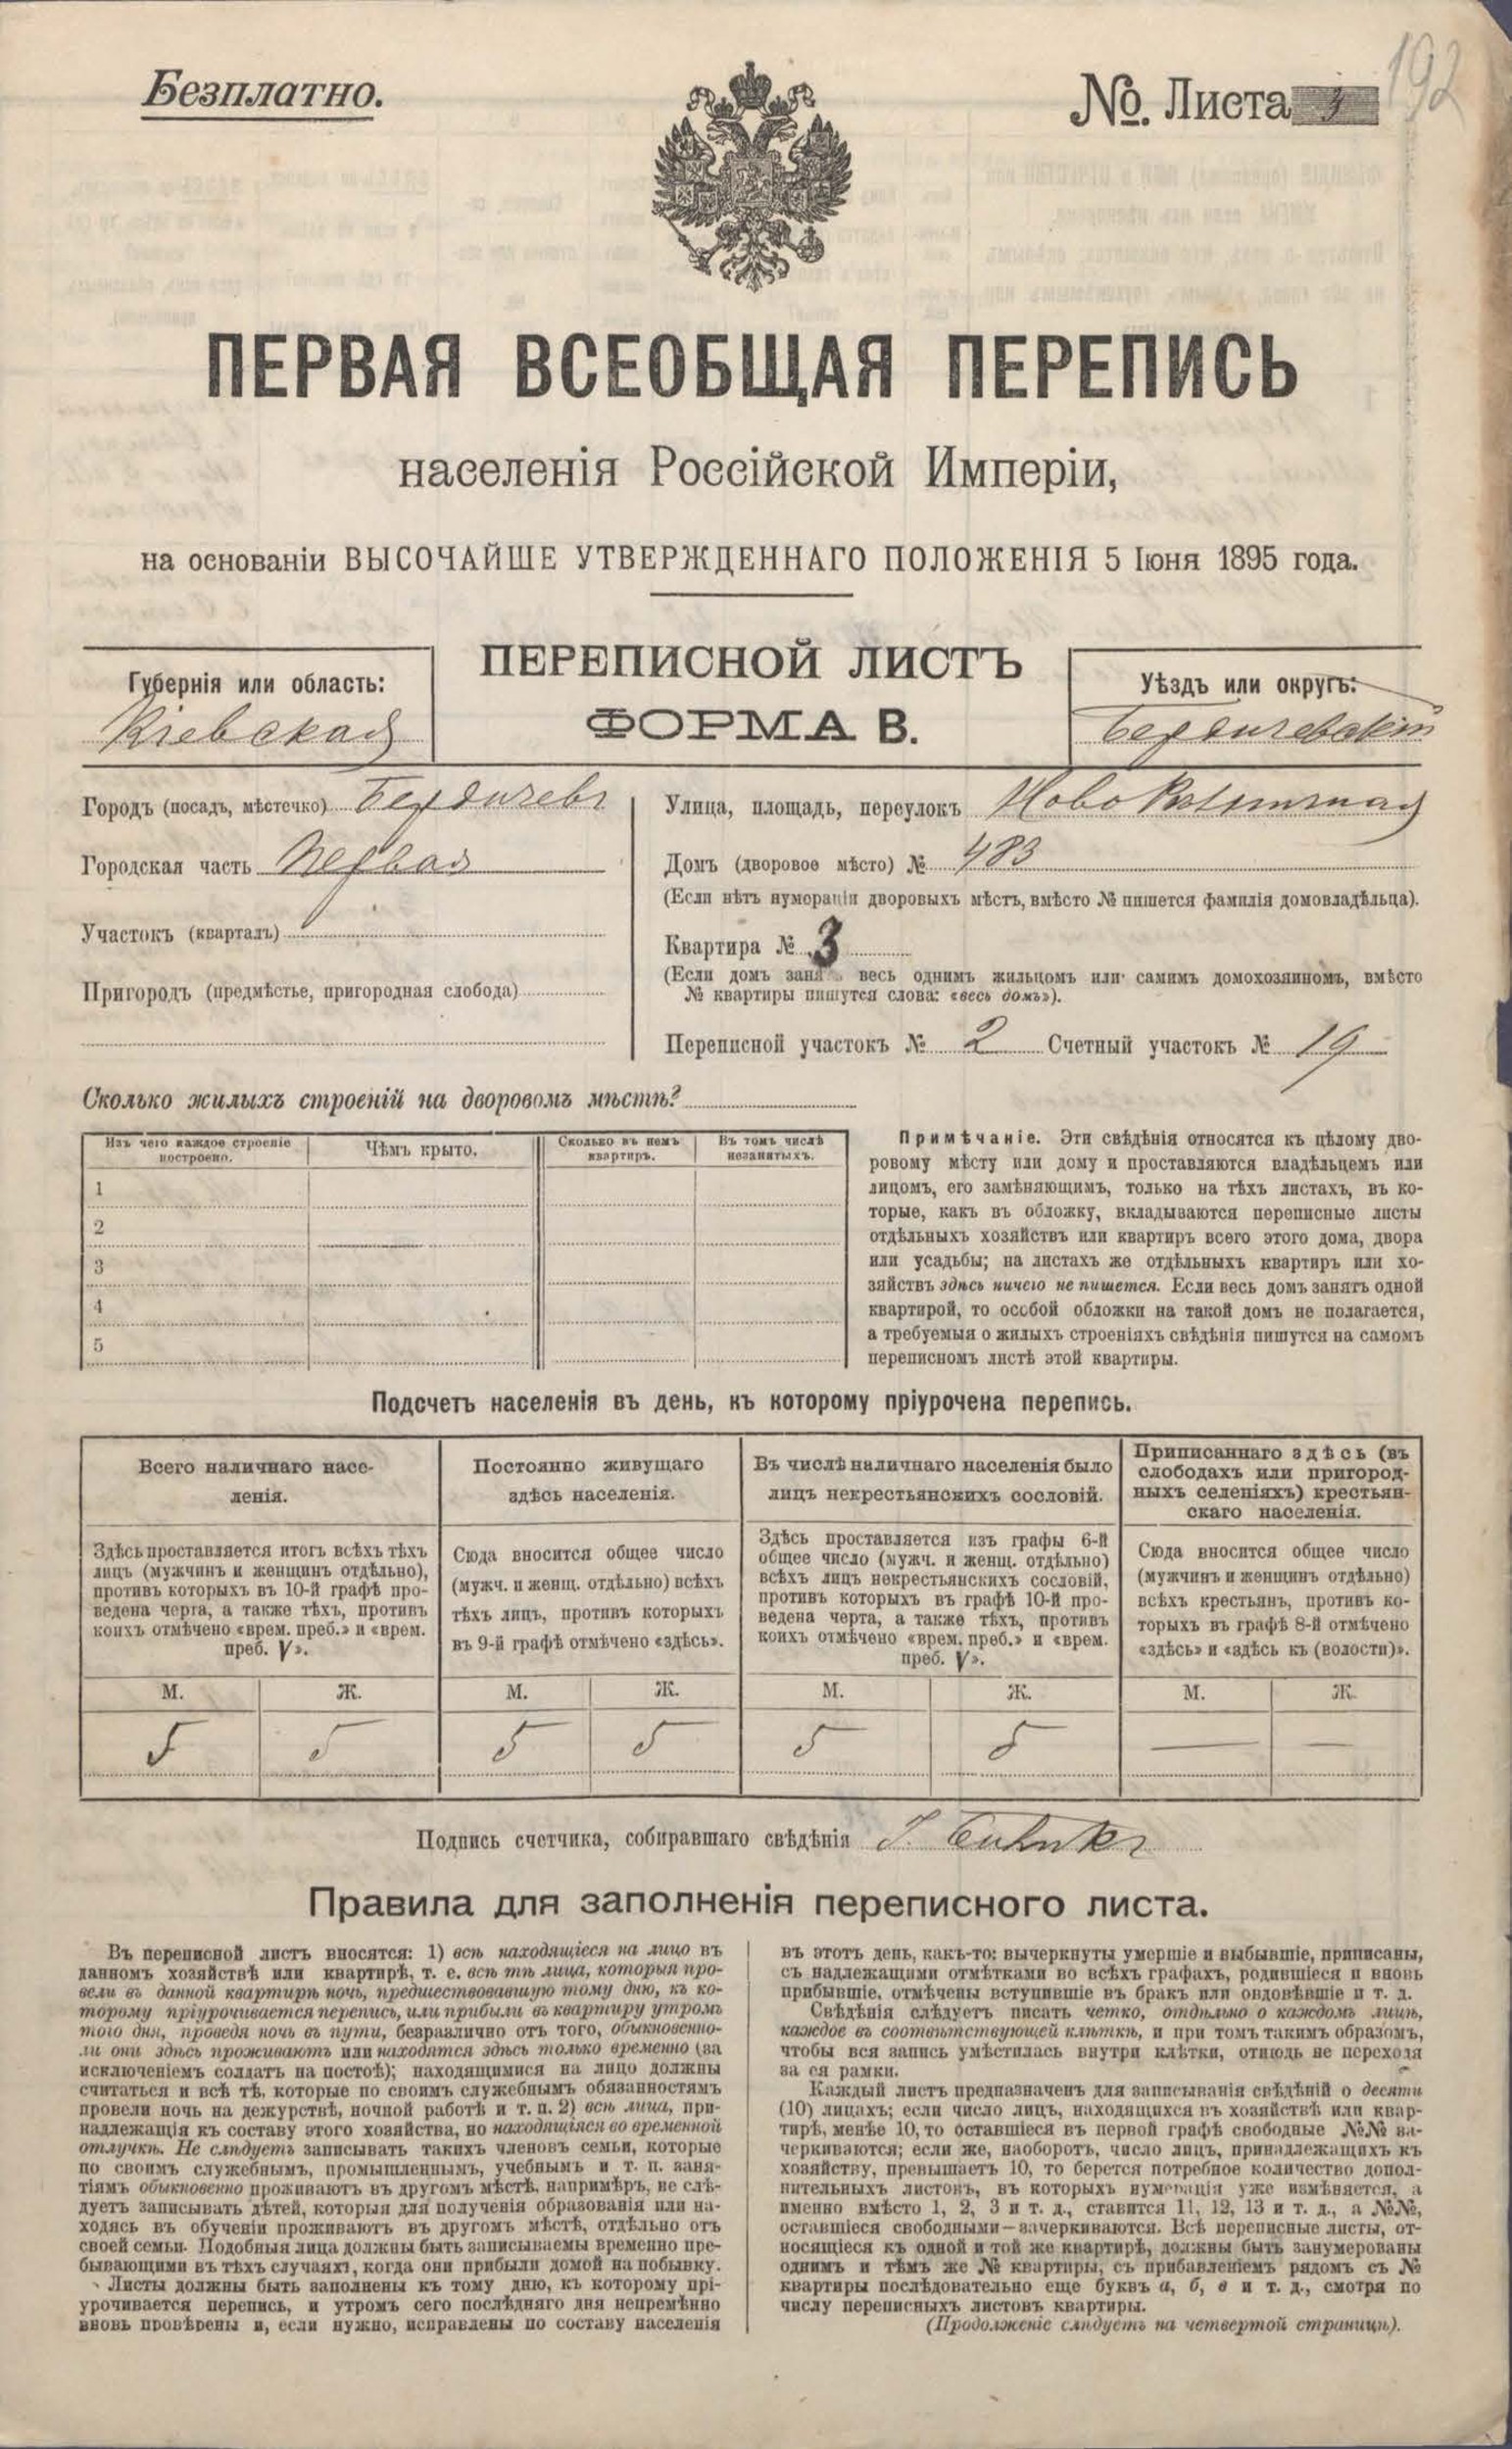 Безплатно.
№. Листа 3
192
ПЕРВАЯ ВСЕОБЩАЯ ПЕРЕПИСЬ
населенія Россійской Имперіи,
на основаніи ВЫСОЧАЙШЕ УТВЕРЖДЕННАГО ПОЛОЖЕНІЯ 5 Іюня 1895 года.
ПЕРЕПИСНОЙ ЛИСТЪ
ФОРМА В.
Губернія или область:
Кіевская
Уѣздъ или округъ:
Бердичевскій
Городъ (посадъ, мѣстечко) Бердичевъ
Городская часть Первая
Участокъ (кварталъ)
Пригородъ (предмѣстье, пригородная слобода)
Улица, площадь, переулокъ
Домъ (дворовое мѣсто) № 483
(Если нѣтъ нумораціи дворовыхъ мѣстъ, вмѣсто № пишется фамилія домовладѣльца).
Квартира № 3
(Если домъ заня весь однимъ жильцомъ или самимъ домохозяиномъ, вмѣсто
№ квартиры пишутся слова: «весь домъ»).
Переписной участокъ № 2 Счетный участокъ № 19
Сколько жилыхъ строеній на дворовомъ мѣстѣ?
Изъ чего каждое строеніе построено.
Чѣмъ крыто.
Сколько въ немъ квартиръ.
Въ томъ числѣ незанятыхъ.
1
2
3
4
5
Примѣчаніе. Эти свѣдѣнія относятся къ цѣлому дво-
ровому мѣсту или дому и проставляются владѣльцемъ или
лицомъ, его замѣняющимъ, только на тѣхъ листахъ, въ ко-
торые, какъ въ обложку, вкладываются переписные листы
отдѣльныхъ хозяйствъ или квартиръ всего этого дома, двора
или усадьбы; на листахъ же отдѣльныхъ квартиръ или хо-
зяйствъ здѣсь ничего не пишется. Если весь домъ занятъ одной
квартирой, то особой обложки на такой домъ не полагается,
а требуемыя о жилыхъ строеніяхъ свѣдѣнія пишутся на самомъ
переписномъ листѣ этой квартиры.
Подсчетъ населенія въ день, къ которому пріурочена перепись.
Всего наличнаго насе-
ленія.
Здѣсь проставляется итогъ всѣхъ тѣхъ
лицъ (мужчинъ и женщинъ отдѣльно),
противъ которыхъ въ 10-й графѣ про-
ведена черта, а также тѣхъ, противъ
коихъ отмѣчено «врем. преб.» и «врем.
преб. V».
Постоянно живущаго
здѣсь населенія.
Сюда вносится общее число
(мужч. и женщ. отдѣльно) всѣхъ
тѣхъ лицъ, противъ которыхъ
въ 9-й графѣ отмѣчено «здѣсь».
Въ числѣ наличнаго населенія было
лицъ некрестьянскихъ сословій.
Здѣсь проставляется изъ графы 6-й
общее число (мужч. и женщ. отдѣльно)
всѣхъ лицъ некрестьянскихъ сословій,
противъ которыхъ въ графѣ 10-й про-
ведена черта, а также тѣхъ, противъ
коихъ отмѣчено «врем. преб.» и «врем.
преб. V».
Приписаннаго здѣсь (въ
слободахъ или пригород-
ныхъ селеніяхъ) крестьян-
скаго населенія.
Сюда вносится общее число
(мужчинъ и женщинъ отдѣльно)
всѣхъ крестьянъ, противъ ко-
торыхъ въ графѣ 8-й отмѣчено
«здѣсь» и «здѣсь къ (волости)».
М. Ж. М. Ж. М. Ж. М. Ж.
5 5 5 5 5 5 — —
Подпись счетчика, собиравшаго свѣдѣнія
Правила для заполненія переписного листа.
Въ переписной листъ вносятся: 1) всѣ находящіеся на лицо въ
данномъ хозяйствѣ или квартирѣ, т. е. всѣ тѣ лица, которыя про-
вели въ данной квартирѣ ночь, предшествовавшую тому дню, къ ко-
торому пріурочивается перепись, или прибыли въ квартиру утромъ
того дня, проведя ночь въ пути, безразлично отъ того, обыкновенно-
ли они здѣсь проживаютъ или находятся здѣсь только временно (за
исключеніемъ солдатъ на постоѣ); находящимися на лицо должны
считаться и всѣ тѣ, которые по своимъ служебнымъ обязанностямъ
провели ночь на дежурствѣ, ночной работѣ и т. п. 2) всѣ лица, при-
надлежащія къ составу этого хозяйства, но находящіяся во временной
отлучкѣ. Не слѣдуетъ записывать такихъ членовъ семьи, которые
по своимъ служебнымъ, промышленнымъ, учебнымъ и т. п. заня-
тіямъ обыкновенно проживаютъ въ другомъ мѣстѣ, напримѣръ, не слѣ-
дуетъ записывать дѣтей, которыя для полученія образованія или на-
ходясь въ обученіи проживаютъ въ другомъ мѣстѣ, отдѣльно отъ
своей семьи. Подобныя лица должны быть записываемы временно пре-
бывающими въ тѣхъ случаяхъ, когда они прибыли домой на побывку.
Листы должны быть заполнены къ тому дню, къ которому прі-
урочивается перепись, и утромъ сего послѣдняго дня непремѣнно
вновь провѣрены и, если нужно, исправлены по составу населенія
въ этотъ день, какъ-то: вычеркнуты умершіе и выбывшіе, приписаны,
съ надлежащими отмѣтками во всѣхъ графахъ, родившіеся и вновь
прибывшіе, отмѣчены вступившіе въ бракъ или овдовѣвшіе и т. д.
Свѣдѣнія слѣдуетъ писать четко, отдѣльно о каждомъ лицѣ,
каждое въ соотвѣтствующей клѣткѣ, и при томъ такимъ образомъ,
чтобы вся запись умѣстилась внутри клѣтки, отнюдь не переходя
за ея рамки.
Каждый листъ предназначенъ для записыванія свѣдѣній о десяти
(10) лицахъ; если число лицъ, находящихся въ хозяйствѣ или квар-
тирѣ, менѣе 10, то оставшіеся въ первой графѣ свободные №№ за-
черкиваются; если же, наоборотъ, число лицъ, принадлежащихъ къ
хозяйству, превышаетъ 10, то берется потребное количество допол-
нительныхъ листовъ, въ которыхъ нумерація уже измѣняется, а
именно вмѣсто 1, 2, 3 и т. д., ставится 11, 12, 13 и т. д., а №№,
оставшіеся свободными—зачеркиваются. Всѣ переписные листы, от-
носящіеся къ одной и той же квартирѣ, должны быть занумерованы
однимъ и тѣмъ же № квартиры, съ прибавленіемъ рядомъ съ №
квартиры послѣдовательно еще буквъ а, б, в и т. д., смотря по
числу переписныхъ листовъ квартиры.
(Продолженіе слѣдуетъ на четвертой страницѣ).